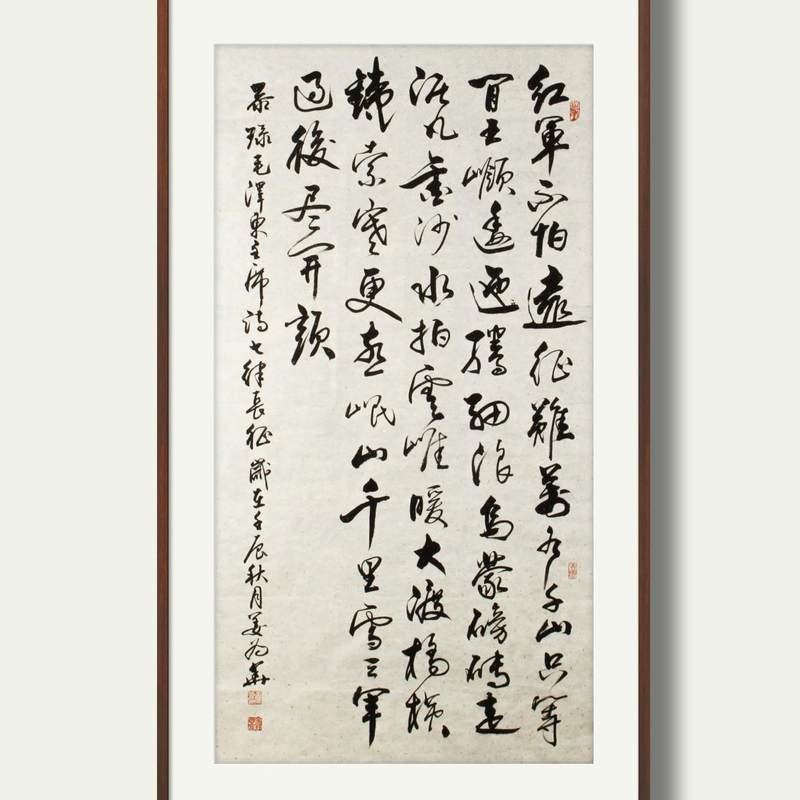 红軍不怕遠征難萬水千山只等
閒五嶺逶迤騰細浪烏蒙磅礴走
泥丸金沙水拍雲崖暖大渡橋横
鐵索寒更喜岷山千里雪三軍
過後尽開顔
恭録毛澤東主席詩七律長征歲在壬辰秋月姜为華